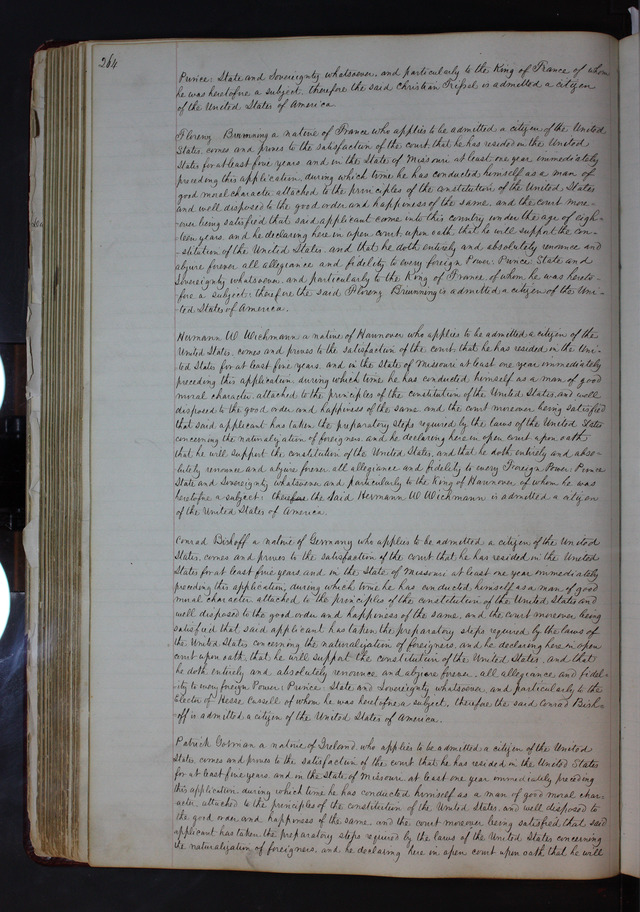 264
Prince, State and Sovereignty whatsoever, and particularly to the King of France of whom
he was heretofore a subject, therefore the said Christian Fripel is admitted a citizen
of the United States of America
Florenz Brunning a native of France who applies to be admitted a citizen of the United
States, comes and proves to the satisfaction of the court that he has resided in the United
States for at least five years and in the State of Missouri at least one year immediately
preceding this application, during which time he has conducted himself as a man of
good moral character attached to the principles of the constitution of the United States
and well disposed to the good order and happiness of the same, and the court more-
-over being satisfied that said applicant came into this country under the age of eigh-
teen years, and he declaring here in open court upon oath, that he will support the con-
-stitution of the United States, and that he doth entirely and absolutely renounce and
abjure forever all allegiance and fidelity to every foreign Power, Prince State and
Sovereignty whatsoever and particularly to the King of France, of whom he was hereto-
fore a subject: therefore the said Florenz Brunning is admitted a citizen of the Uni-
ted States of America.
Hermann W Wichmann a native of Hannover who applies to be admitted a citizen of the
United States, comes and proves to the satisfaction of the court, that he has resided in the Uni-
ted States for at least five years, and in the State of Missouri at least one year immediately
preceding this application during which time he has conducted himself as a man of good
moral character, attached to the principles of the constitution of the United States, and well
disposed to the good order and happiness of the same and the court moreover being satisfied
that said applicant has taken the preparatory steps required by the laws of the United States
concerning the naturalization of foreigners, and he declaring here in open court upon oath
that he will support the constitution of the United States, and that he doth entirely and abso-
lutely renounce and abjure forever all allegiance and fidelity to every Foreign Power, Prince
State and Sovereignty whatsoever and particularly to the King of Hannover of whom he was
heretofore a subject; therefore the said Hermann W Wichmann is admitted a citizen
of the United States of America
Conrad Bishoff a native of Germany who applies to be admitted a citizen of the United
States, comes and proves to the satisfaction of the court that he has resided in the United
States for at least five years, and in the State of Missouri at least one year immediately
preceding this application, during which time he has conducted himself as a man of good
moral character attached to the principles of the constitution of the United States and
well disposed to the good order and happiness of the same, and the court moreover being
satisfied that said applicant has taken the preparatory steps required by the laws of
the United States concerning the naturalization of foreigners, and he declaring here in open
court upon oath, that he will support the constitution of the United States, and that
he doth entirely and absolutely renounce and abjure forever all allegiance and fidel-
-ity to every foreign Power, Prince, State and Sovereignty whatsoever, and particularly to the
Elector of Hesse Cassell of whom he was heretofore a subject, therefore the said Conrad Bish-
off is admitted a citizen of the United States of America.
Patrick Gorman a native of Ireland, who applies to be admitted a citizen of the United
States comes and proves to the satisfaction of the court that he has resided in the United States
for at least five years and in the State of Missouri at least one year immediately preceding
this application during which time he has conducted himself as a man of good moral char-
acter, attached to the principles of the constitution of the United States, and well disposed to
the good order and happiness of the same and the court moreover being satisfied that said
applicant has taken the preparatory steps required by the laws of the United States concerning
the naturalization of foreigners, and he declaring here in open court upon oath that he will